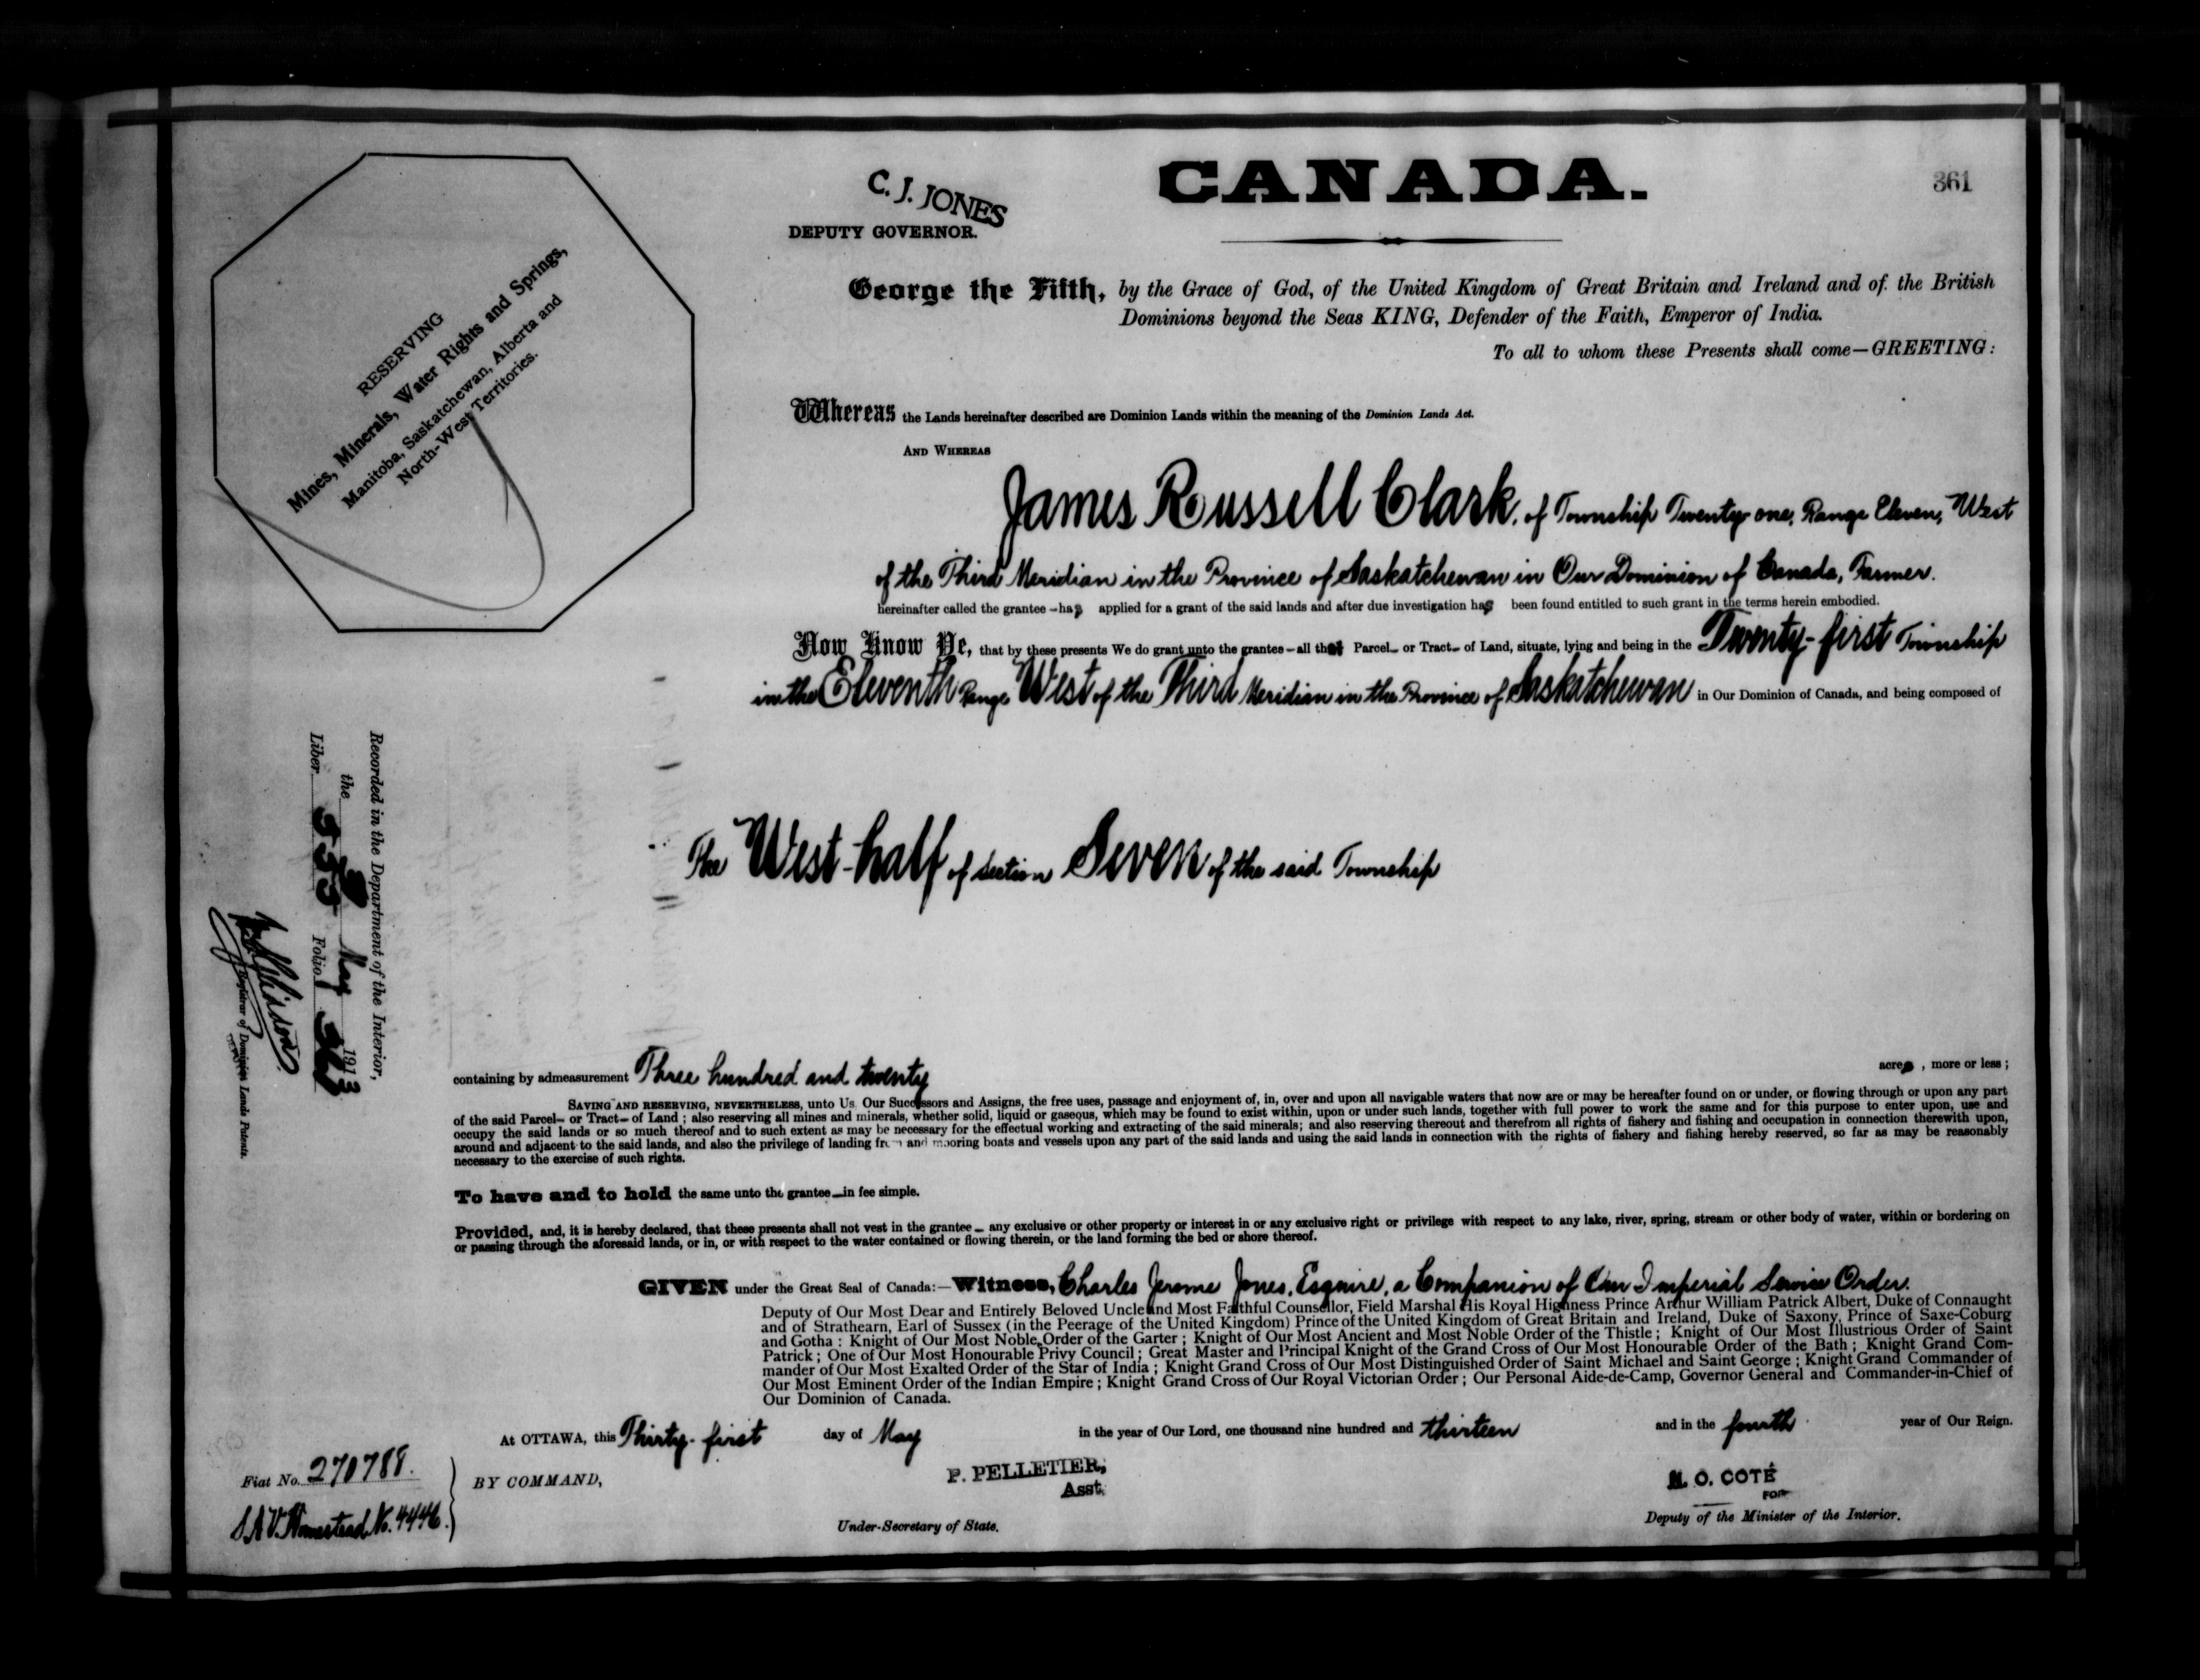 CANADA.
361
C. J. JONES
DEPUTY GOVERNOR.
RESERVING
Mines, Minerals, Water Rights and Springs,
Manitoba, Saskatchewan, Alberta and
North-West Territories.
George the Fifth, by the Grace of God, of the United Kingdom of Great Britain and Ireland and of the British
Dominions beyond the Seas KING, Defender of the Faith, Emperor of India.
To all to whom these Presents shall come—GREETING:
Whereas the Lands hereinafter described are Dominion Lands within the meaning of the Dominion Lands Act.
AND WHEREAS
James Russell Clark, of Township Twenty-one, Range Eleven, West
of the Third Meridian in the Province of Saskatchewan in Our Dominion of Canada, Farmer.
hereinafter called the grantee—has applied for a grant of the said lands and after due investigation has been found entitled to such grant in the terms herein embodied.
Now Know Ye, that by these presents We do grant unto the grantee—all that Parcel— or Tract— of Land, situate, lying and being in the Twenty-first Township
in the Eleventh Range West of the Third Meridian in the Province of Saskatchewan in Our Dominion of Canada, and being composed of
The West-half of Section Seven of the said Township
Recorded in the Department of the Interior,
the May 1913
Liber Folio
Registrar of Dominion Lands Patents.
containing by admeasurement Three hundred and twenty acres, more or less;
SAVING AND RESERVING, NEVERTHELESS, unto Us, Our Successors and Assigns, the free uses, passage and enjoyment of, in, over and upon all navigable waters that now are or may be hereafter found on or under, or flowing through or upon any part
of the said Parcel— or Tract— of Land; also reserving all mines and minerals, whether solid, liquid or gaseous, which may be found to exist within, upon or under such lands, together with full power to work the same and for this purpose to enter upon, use and
occupy the said lands or so much thereof and to such extent as may be necessary for the effectual working and extracting of the said minerals; and also reserving thereout and therefrom all rights of fishery and fishing and occupation in connection therewith upon,
around and adjacent to the said lands, and also the privilege of landing from and mooring boats and vessels upon any part of the said lands and using the said lands in connection with the rights of fishery and fishing hereby reserved, so far as may be reasonably
necessary to the exercise of such rights.
To have and to hold the same unto the grantee—in fee simple.
Provided, and, it is hereby declared, that these presents shall not vest in the grantee— any exclusive or other property or interest in or any exclusive right or privilege with respect to any lake, river, spring, stream or other body of water, within or bordering on
or passing through the aforesaid lands, or in, or with respect to the water contained or flowing therein, or the land forming the bed or shore thereof.
GIVEN under the Great Seal of Canada:—Witness, Charles Jerome Jones, Esquire, a Companion of Our Imperial Service Order.
Deputy of Our Most Dear and Entirely Beloved Uncle and Most Faithful Counsellor, Field Marshal His Royal Highness Prince Arthur William Patrick Albert, Duke of Connaught
and of Strathearn, Earl of Sussex (in the Peerage of the United Kingdom) Prince of the United Kingdom of Great Britain and Ireland, Duke of Saxony, Prince of Saxe-Coburg
and Gotha: Knight of Our Most Noble Order of the Garter; Knight of Our Most Ancient and Most Noble Order of the Thistle; Knight of Our Most Illustrious Order of Saint
Patrick; One of Our Most Honourable Privy Council; Great Master and Principal Knight of the Grand Cross of Our Most Honourable Order of the Bath; Knight Grand Com-
mander of Our Most Exalted Order of the Star of India; Knight Grand Cross of Our Most Distinguished Order of Saint Michael and Saint George; Knight Grand Commander of
Our Most Eminent Order of the Indian Empire; Knight Grand Cross of Our Royal Victorian Order; Our Personal Aide-de-Camp, Governor General and Commander-in-Chief of
Our Dominion of Canada.
At OTTAWA, this Thirty-first day of May in the year of Our Lord, one thousand nine hundred and thirteen and in the fourth year of Our Reign.
Fiat No. 270788.
S.A.V. Homestead No. 4446.
BY COMMAND,
P. PELLETIER,
Asst.
Under-Secretary of State.
N. O. COTÉ
FOR
Deputy of the Minister of the Interior.